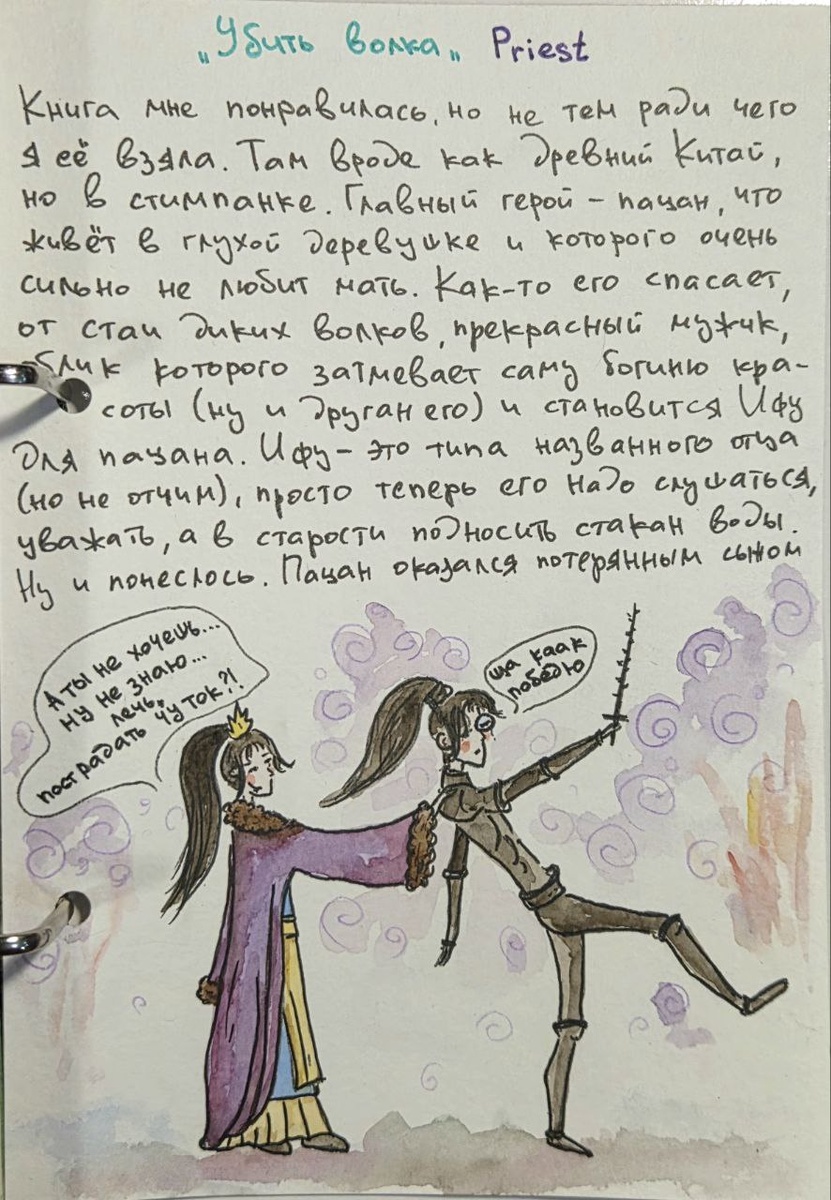 „Убить волка„ Priest
Книга мне понравилась, но не тем ради чего
я её взяла. Там вроде как древний Китай,
но в стимпанке. Главный герой – пацан, что
живёт в глухой деревушке и которого очень
сильно не любит мать. Как-то его спасает,
от стаи диких волков, прекрасный мужик,
облик которого затмевает саму богиню кра-
соты (ну и друган его) и становится Ифу
для пацана. Ифу – это типа названного отца
(но не отчим), просто теперь его надо слушаться,
уважать, а в старости подносить стакан воды.
Ну и понеслось. Пацан оказался потерянным сыном
А ты не хочешь...
ну не знаю...
лечь,
пострадать чуток?!
ща каак
победю